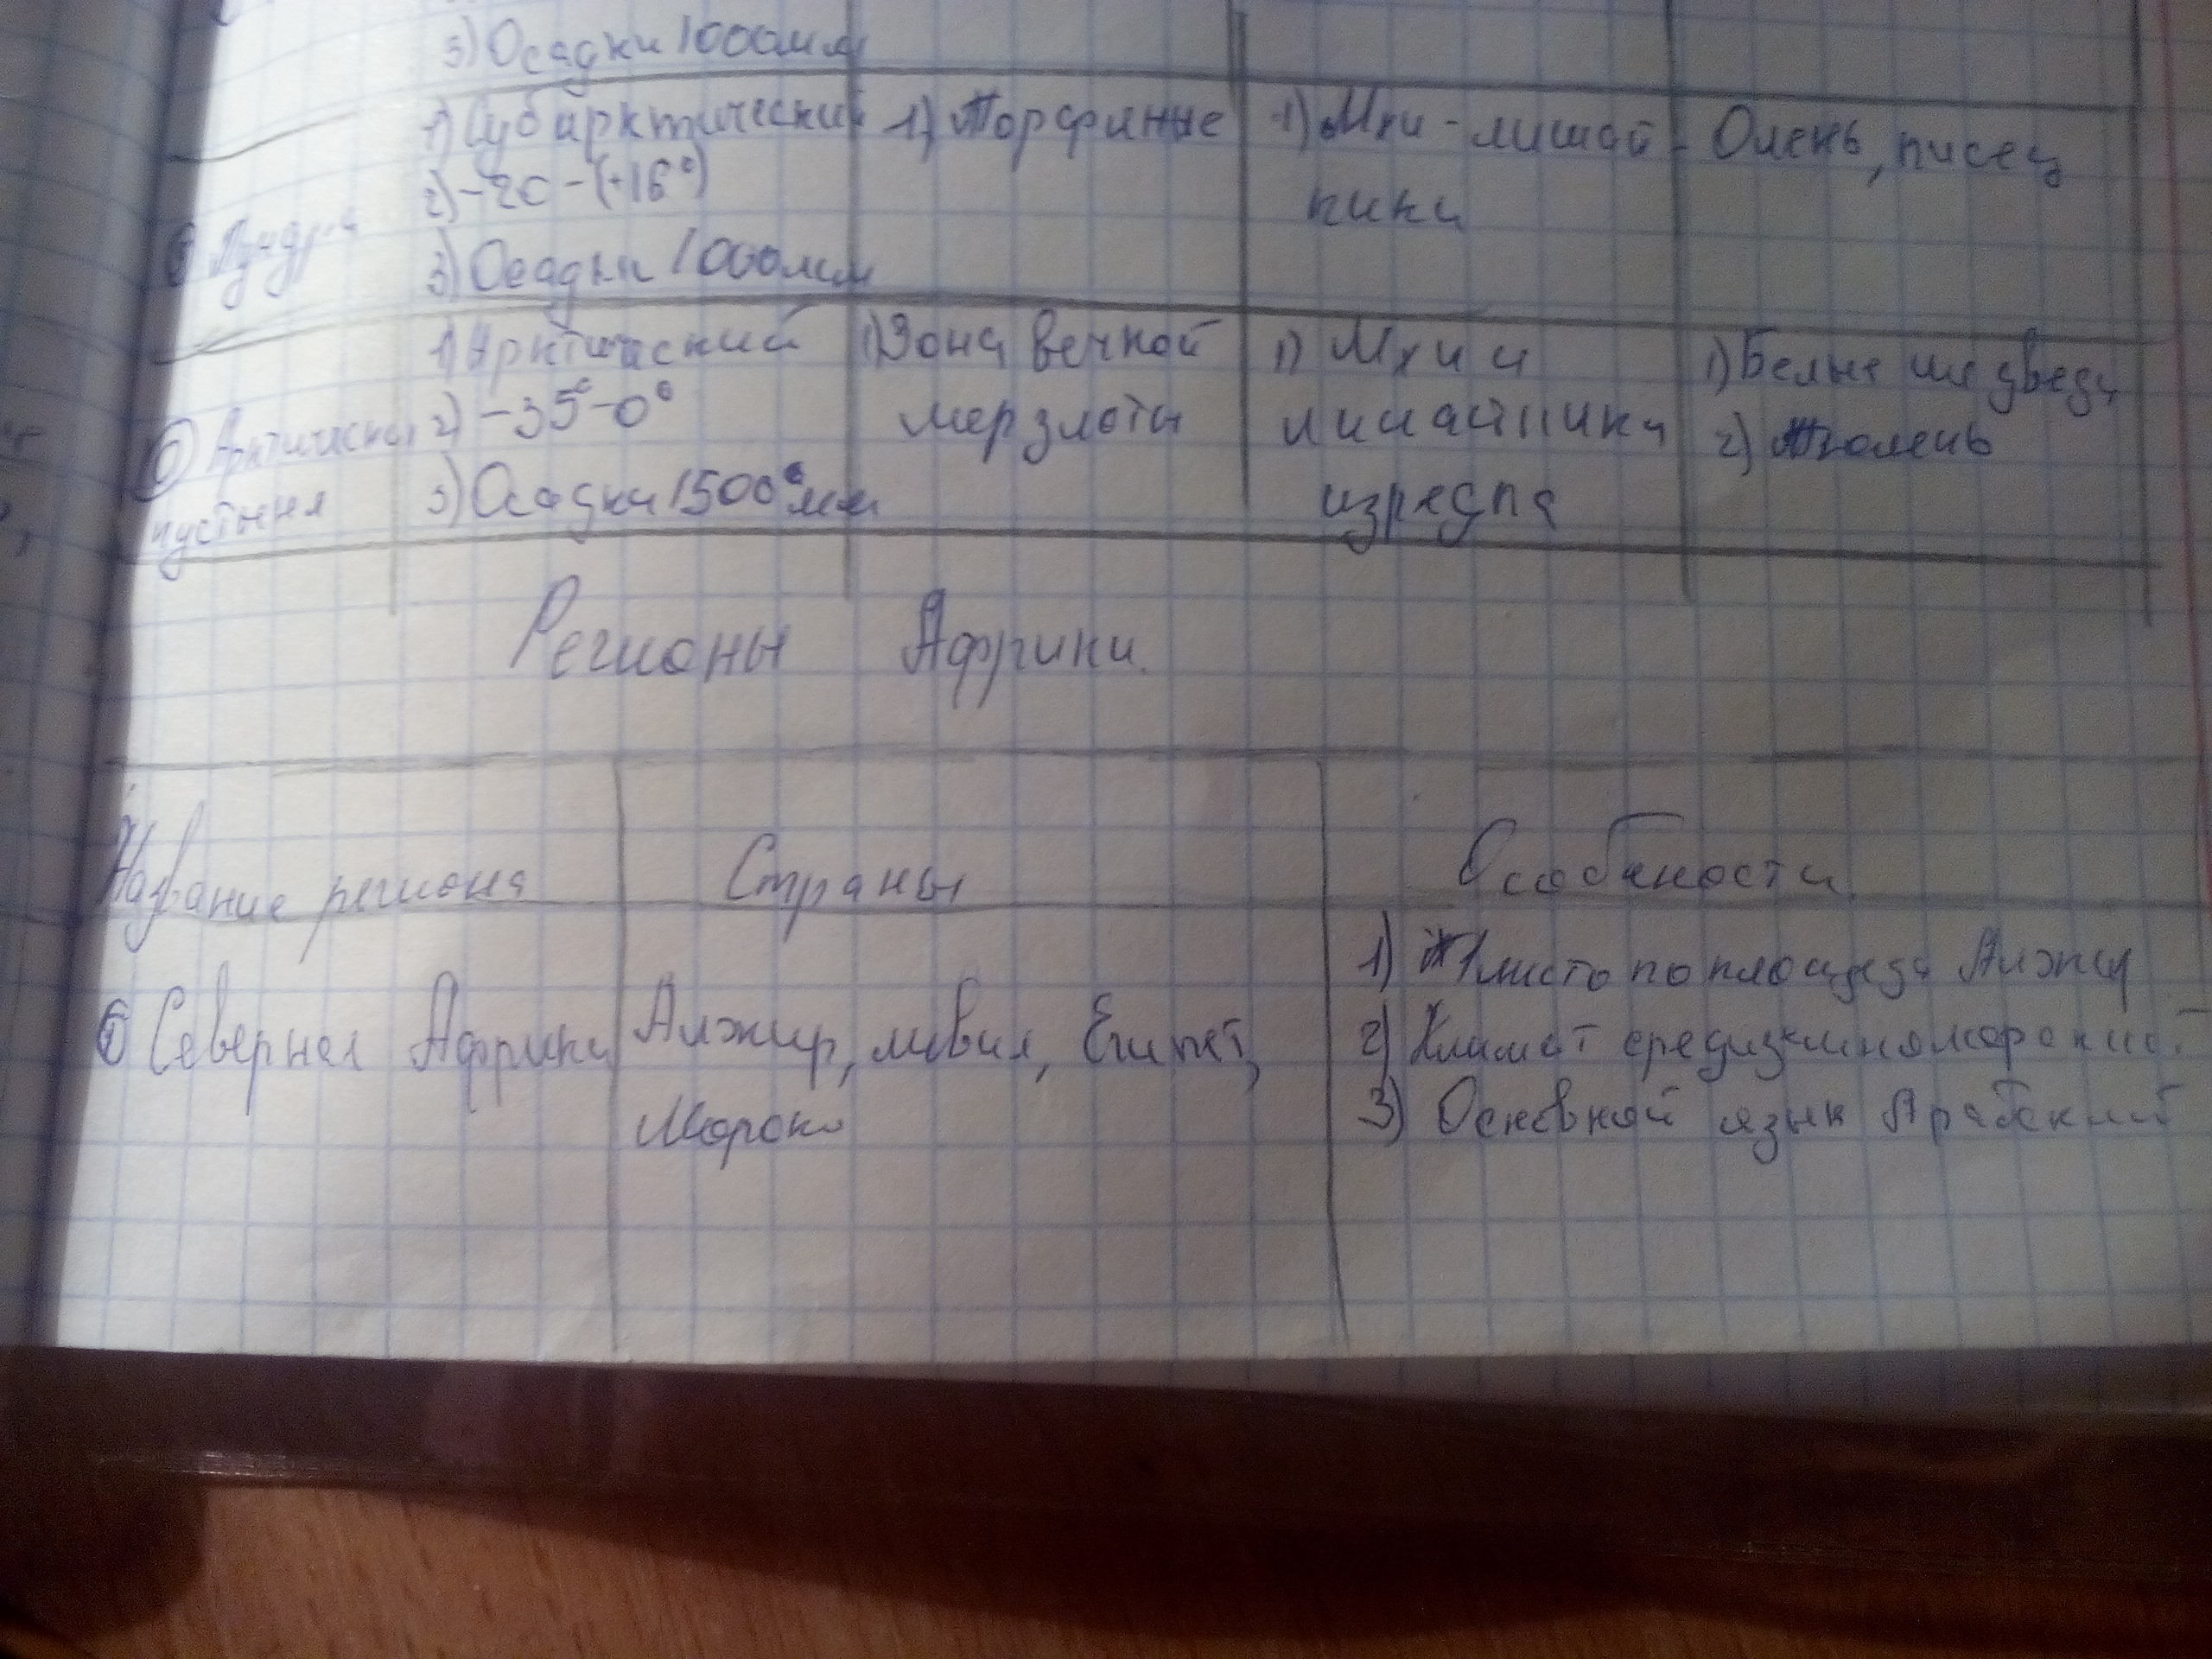 3) Осадки 1000мм
1) Субарктический 1) Торфяные 1) Мхи-лишай- Олень, писец
2) -20-(+16°) ники
Тундра
3) Осадки 1000мм
1) Арктический 1) Зона вечной 1) Мхи и 1) Белые медведи
Арктическая 2) -35°-0° мерзлоты лишайники 2) Тюлень
пустыня 3) Осадки 1500°мм изредка
Регионы Африки.
Название региона Страны Особености
1) 1 место по площеди Алжир
① Северная Африки Алжир, ливия, Египет, 2) Климат
Мороко 3) Основной язык Арабский